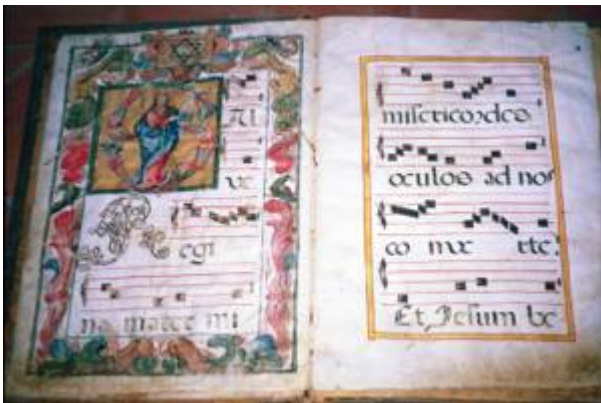 Sal
ve
Regi
na mater mi
misericordes
oculos ad nos
co nve rte:
Et, Jesum be